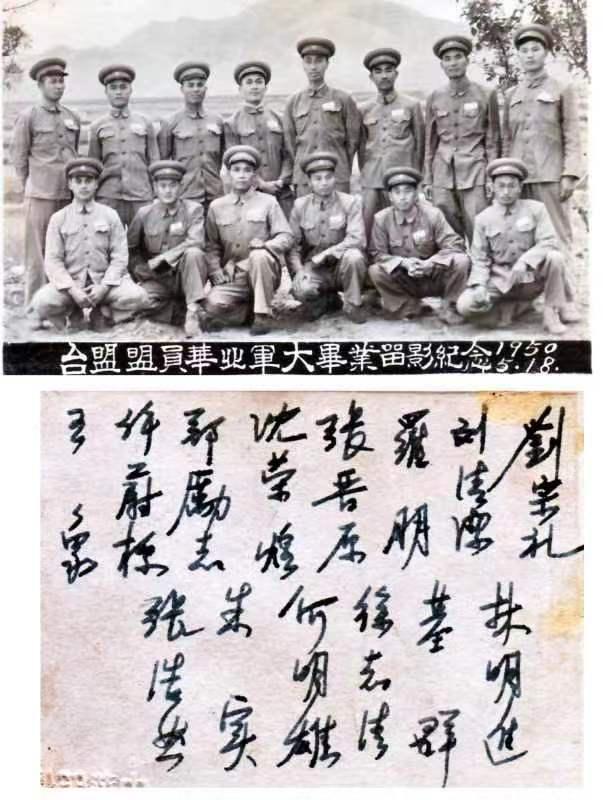 台盟盟員華北軍大畢業留影紀念1950
5.18.
劉崇礼
刘清
羅明
張晋原
沈荣煌
鄭勵志
蔚
林明進
群
徐志清
何明雄
朱实
張浩然